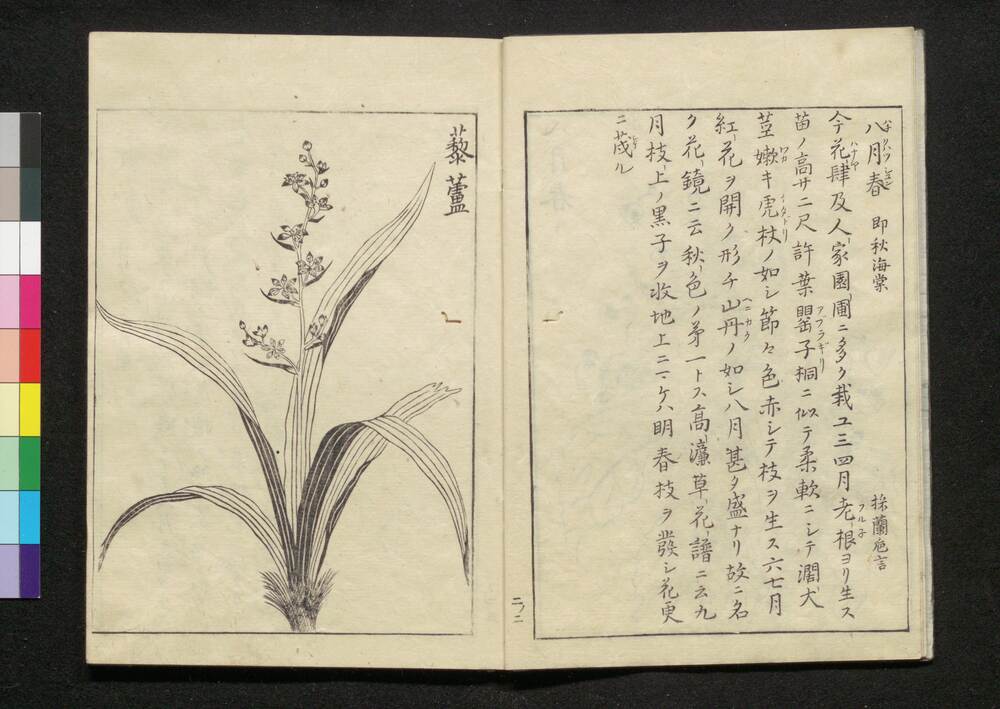 八月春 即秋海棠 採蘭巵言
今花肆及人家園圃ニ多ク栽ユ三四月老根ヨリ生ス
苗ノ高サ二尺許葉罌子桐ニ似テ柔軟ニシテ濶大
莖嫩キ虎杖ノ如シ節々色赤シテ枝ヲ生ス六七月
紅花ヲ開ク形チ山丹ノ如シ八月甚タ盛ナリ故ニ名
ク花鏡ニ云秋色ノ第一トス高濂草花譜ニ云九
月枝上ノ黒子ヲ收地上ニマケハ明春枝ヲ發シ花更
ニ茂ル
二ノ二
藜蘆